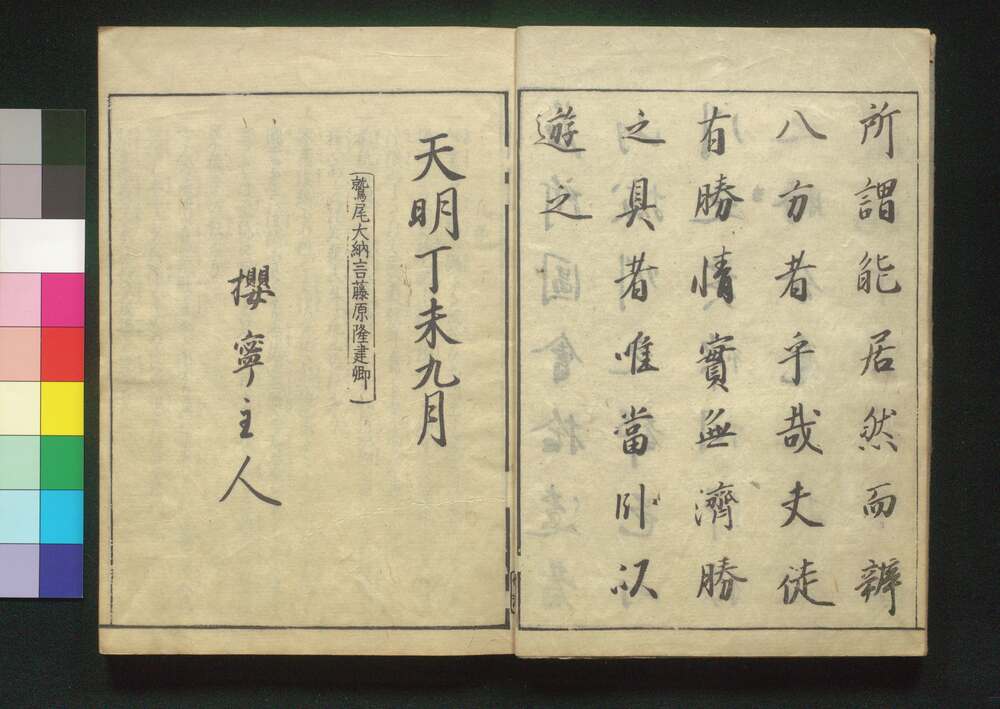 所謂能居然而辨
八方者乎哉夫徒
有勝情實無濟勝
之具者唯當臥以
遊之
天明丁未九月
鷲尾大納言藤原隆建卿
攖寧主人